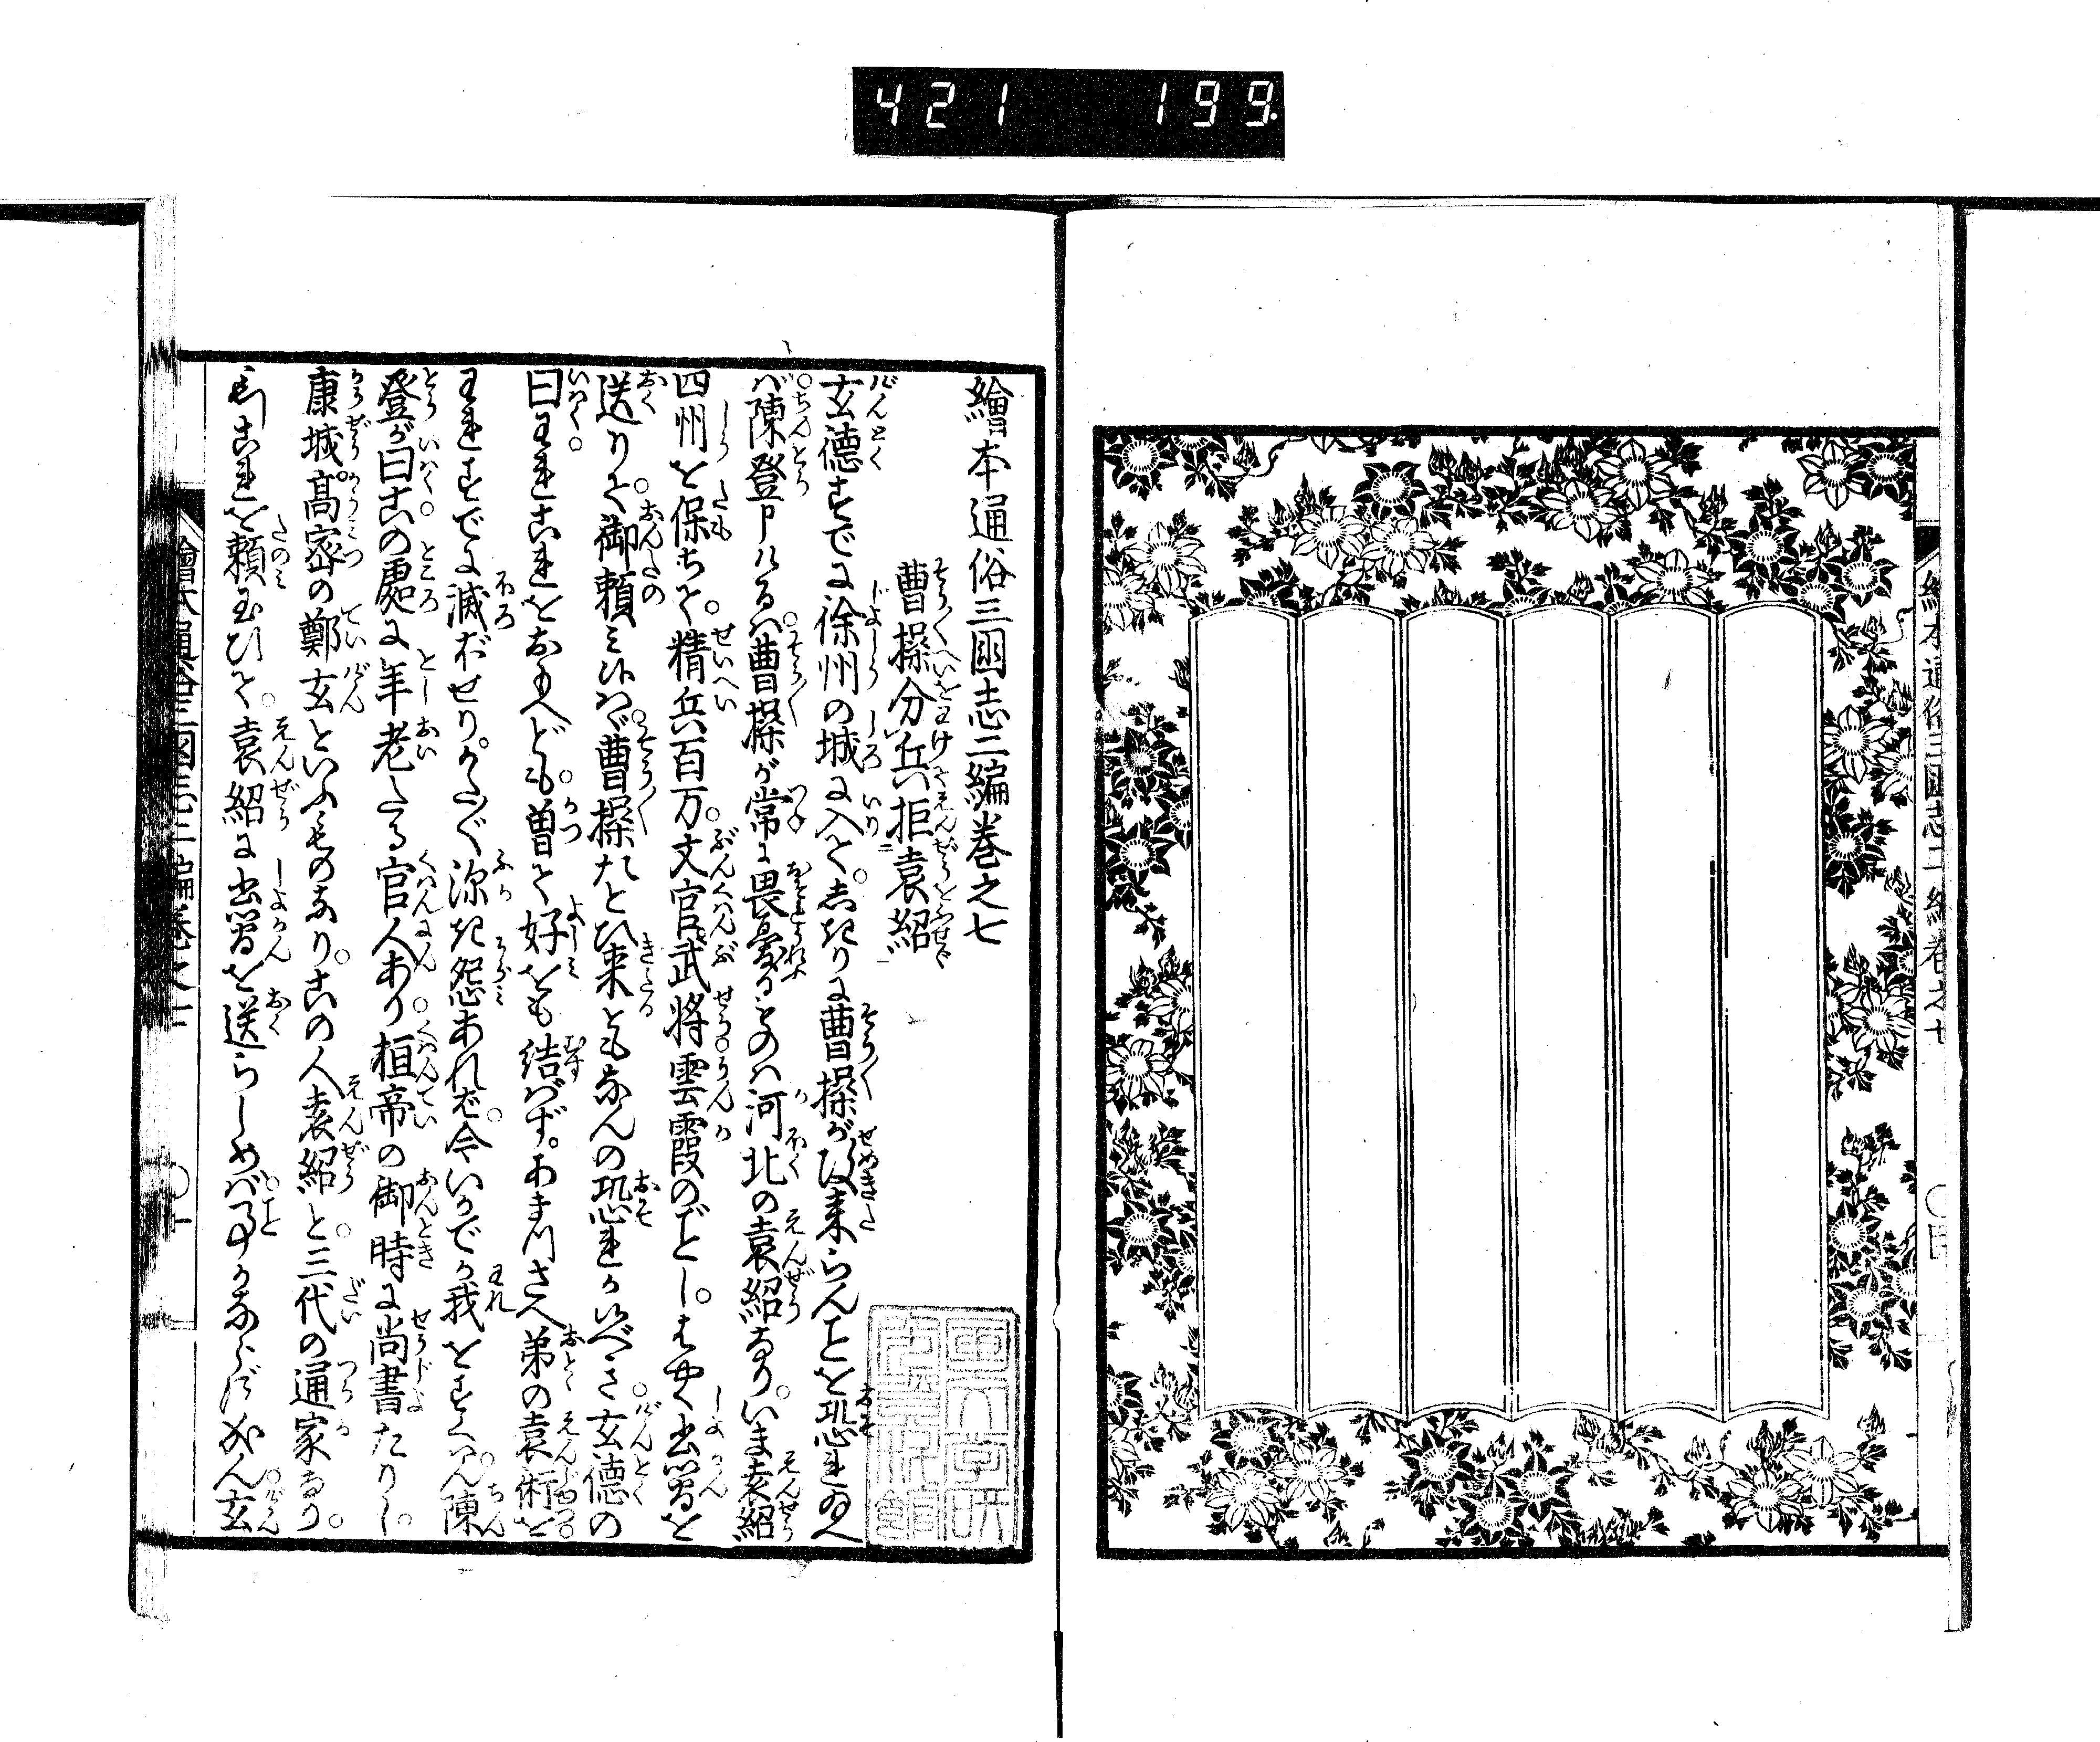 421 199.
繪本通俗三國志二編卷之七
繪本通俗三國志二編卷之七
曹操分兵拒袁紹
玄德すでに徐州の城に入て。しきりに曹操が攻来らんことを恐れ玉へ
ば。陳登申けるは。曹操が常に畏憂るものは河北の袁紹なり。いま袁紹
四州を保ちて。精兵百万。文官武将雲霞のごとし。はやく書簡を
送りて。御頼み候はゞ。曹操たとひ来とも。なんの恐れか候べき。玄德の
曰。われこれをおもへども。曽て好をも結ばず。あまつさへ弟の袁術を
われすでに滅ぼせり。かへつて深き怨あれば。今いかでか我をすくはん。陳
登が曰。この處に年老たる官人あり。桓帝の御時に尚書たりし。
康城高密の鄭玄といふものなり。この人袁紹と。三代の通家なり。
もしこれを頼玉ひて。袁紹に書簡を送らしめば。事かならずなん。玄
繪本通俗三國志二編卷之七